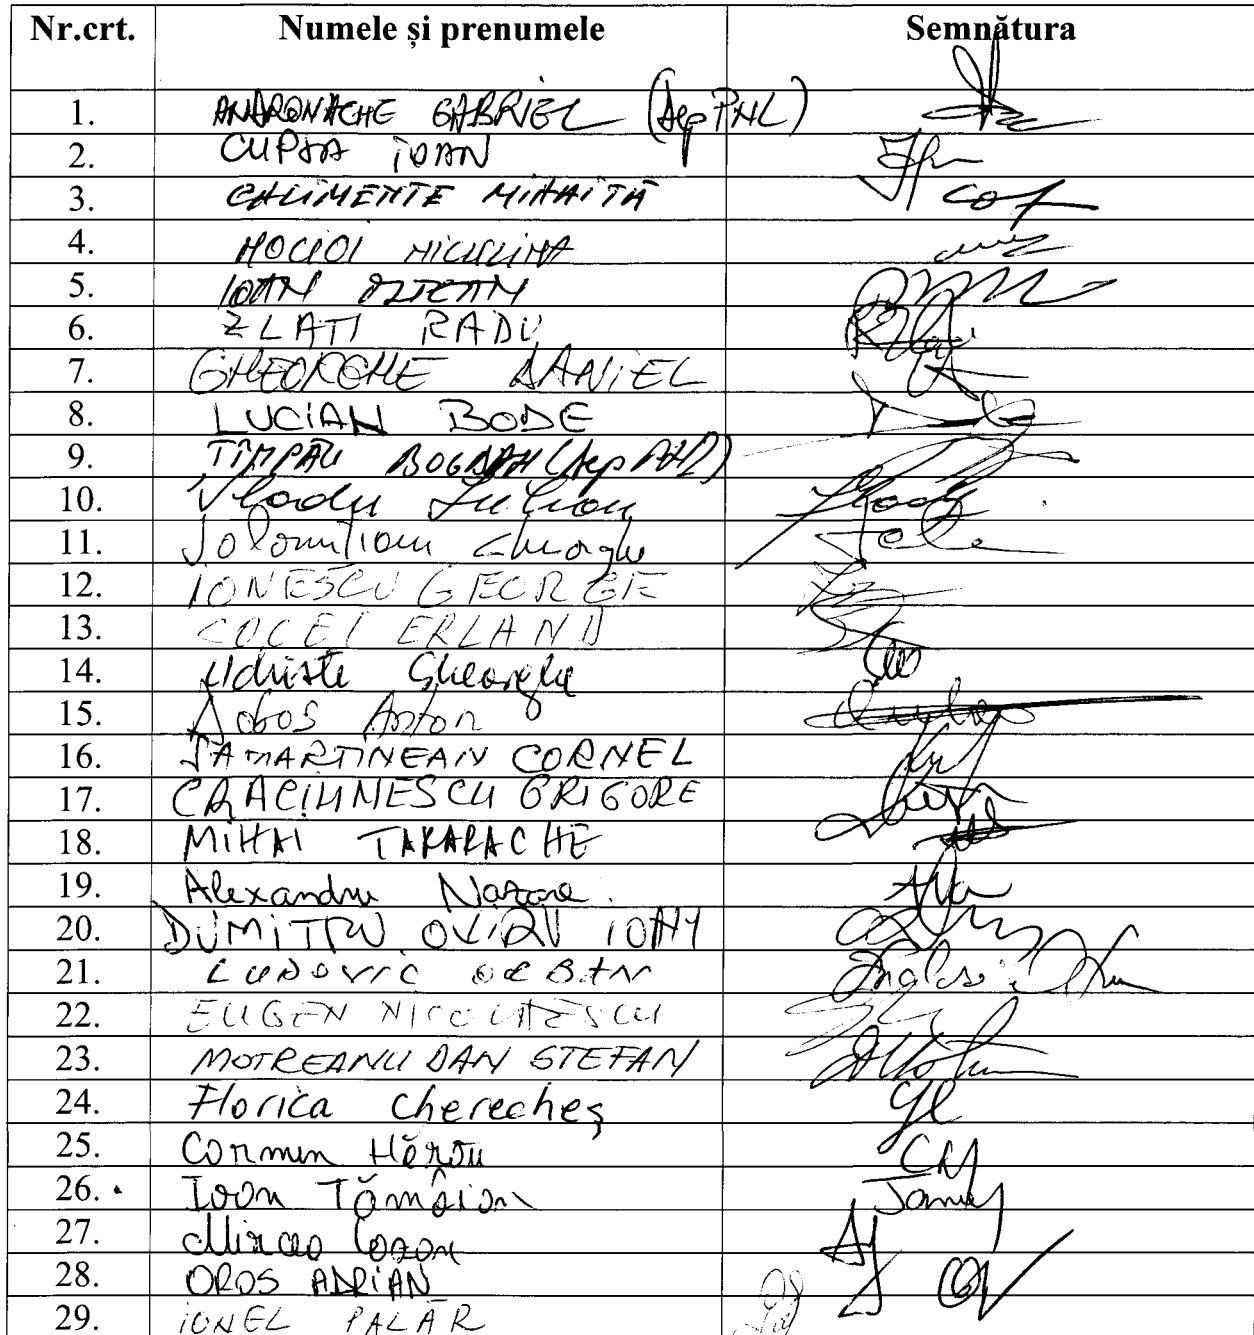 Nr.crt. Numele și prenumele Semnătura
1. ANDRONACHE GABRIEL (dep PNL)
2. CUPȘA IOAN
3. CALIMENTE MIHAIȚĂ
4. MOCIOI NICULINA
5. IOAN OLTEAN
6. ZLATI RADU
7. GHEORGHE DANIEL
8. LUCIAN BODE
9. TÎMPĂU BOGDAN (dep PNL)
10. Vladu Iulian
11. Ialomițianu Gheorghe
12. IONESCU GEORGE
13. COCEI ERLAND
14. Udriște Gheorghe
15. Doboș Anton
16. SAMARTINEAN CORNEL
17. CRACIUNESCU GRIGORE
18. MIHAI TARARACHE
19. Alexandru Nazare
20. DUMITRU OVIDIU IOAN
21. LUDOVIC ORBAN
22. EUGEN NICOLAESCU
23. MOTREANU DAN STEFAN
24. Florica Cherecheș
25. Cormen Hărău
26. Ioan Tămâian
27. Mircea
28. OROS ADRIAN
29. IONEL PALĂR